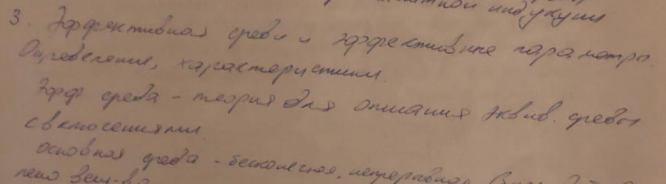 индукции
3. Эффективная среда и эффективные параметры.
Определение, характеристики.
Эфф среда - теория для описания эквив. среды
с включениями.
основная среда - бесконечная, непрерывная